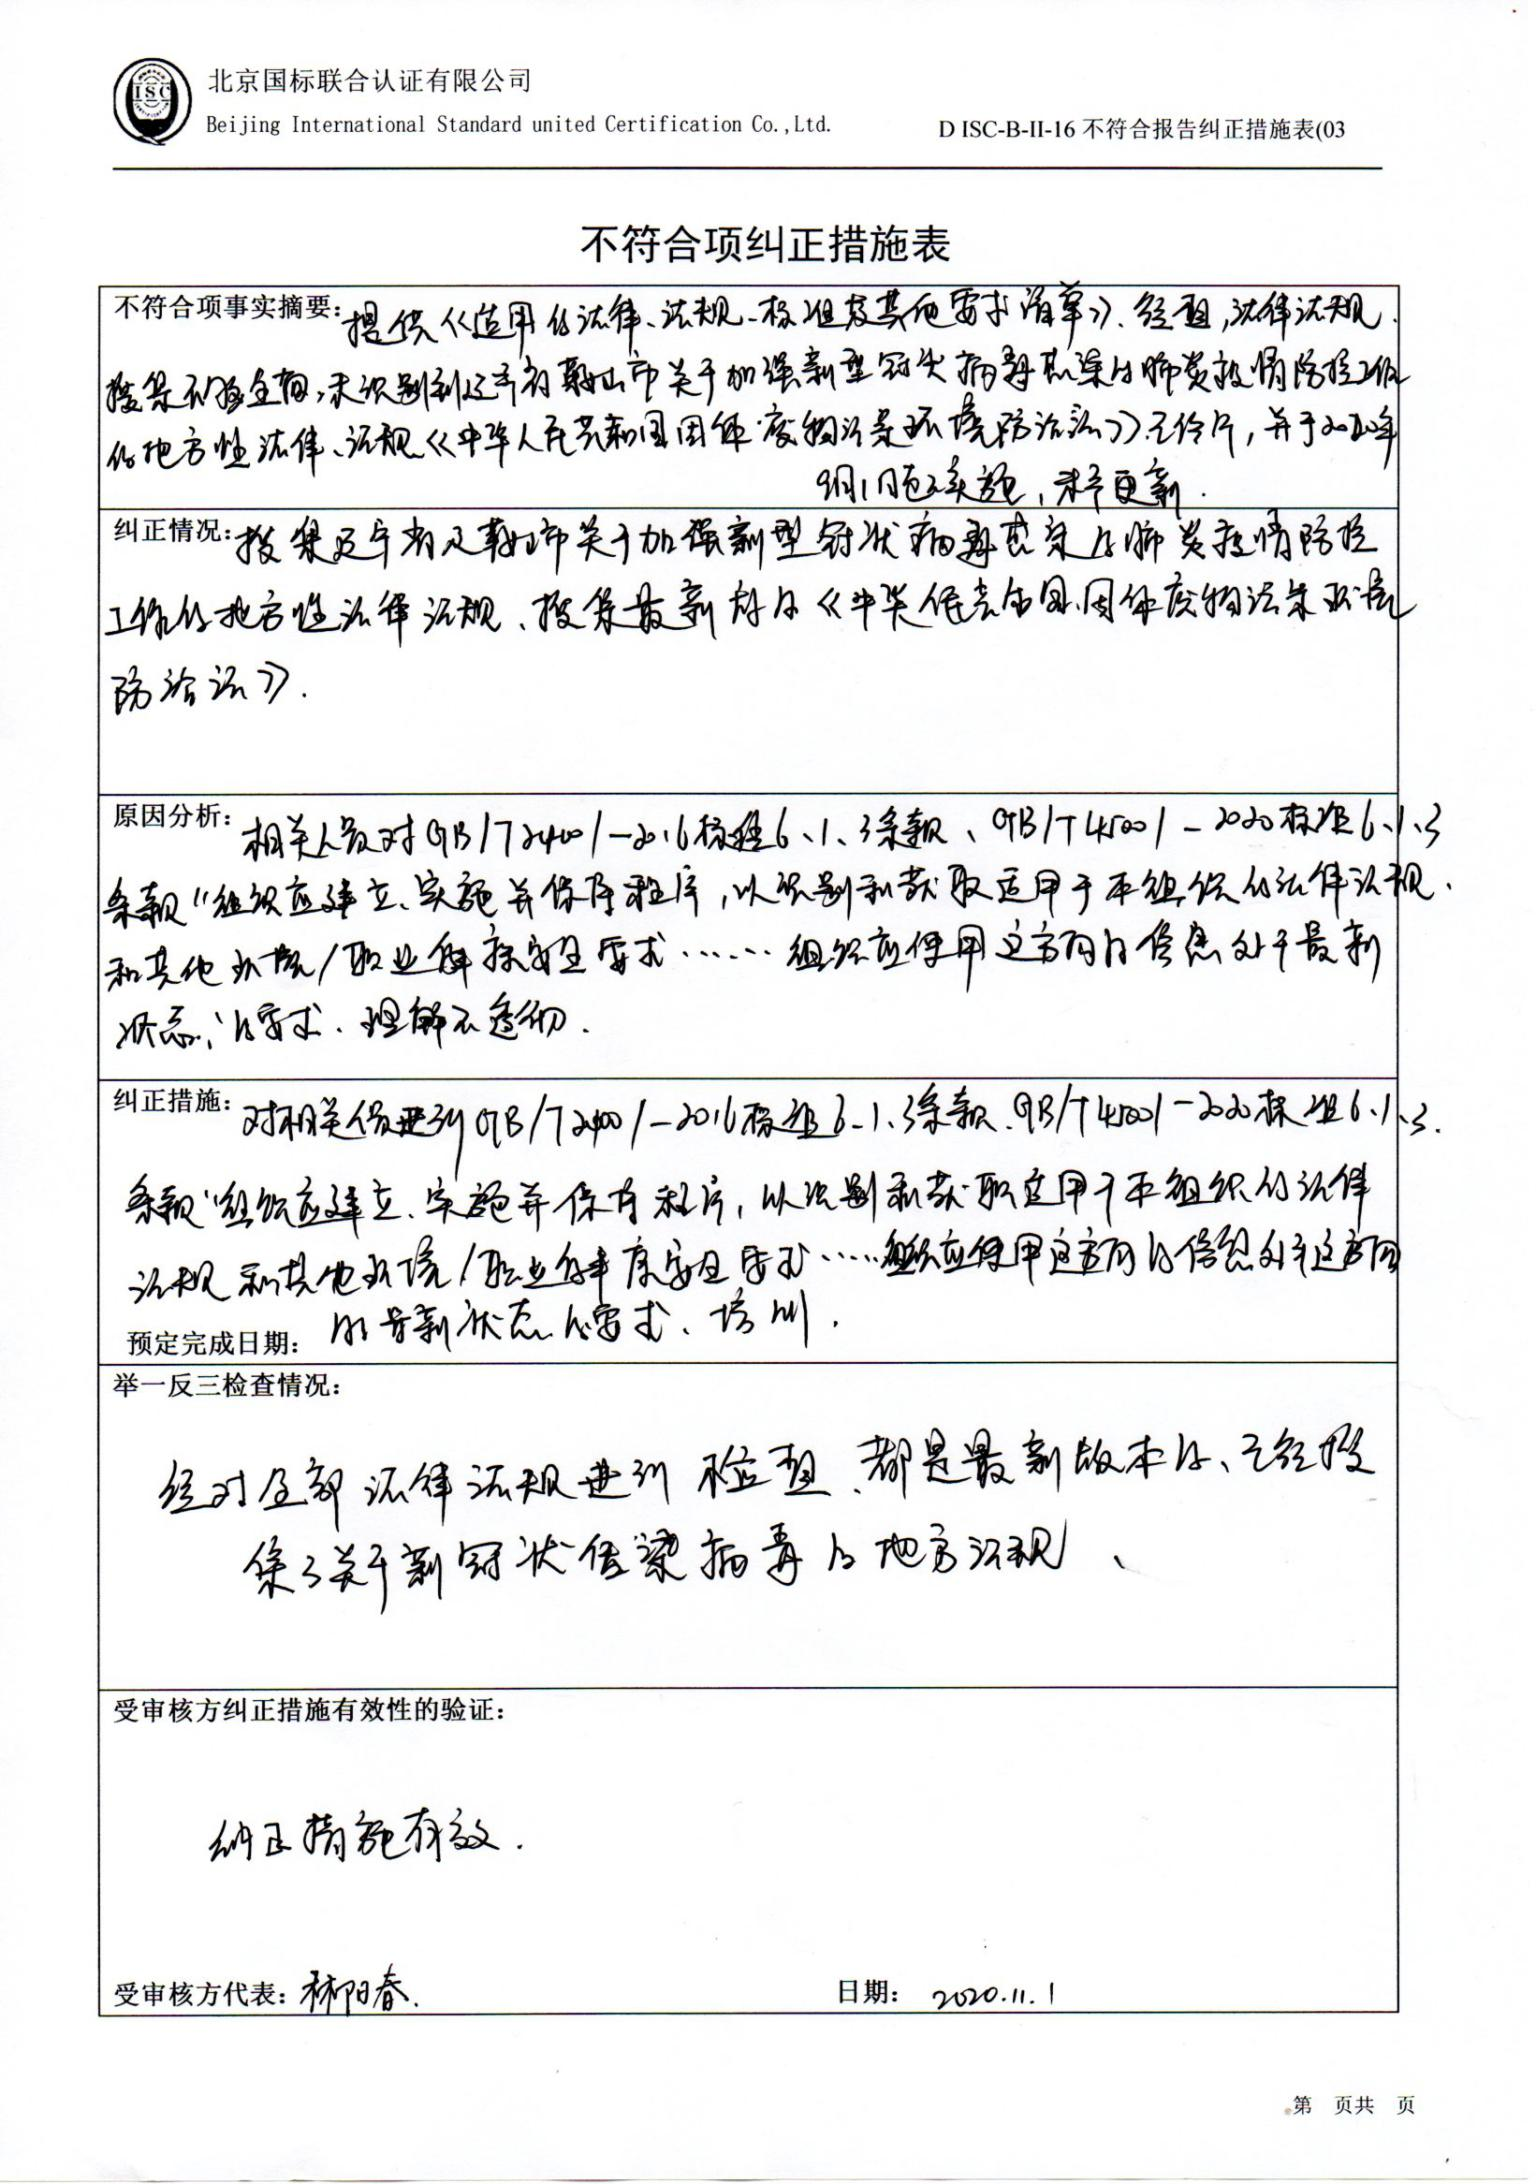 ISC
北京国标联合认证有限公司
Beijing International Standard united Certification Co.,Ltd.
D ISC-B-II-16 不符合报告纠正措施表(03
不符合项纠正措施表
不符合项事实摘要：提供《适用的法律、法规、标准及其他要求清单》、经查，法律法规
搜集不够全面，未识别到辽宁省鞍山市关于加强新型冠状病毒感染的肺炎疫情防控工作
的地方性法律、法规《中华人民共和国固体废物污染环境防治法》已修订，并于2020年
9月1日起实施，未更新.
纠正情况：搜集辽宁省及鞍山市关于加强新型冠状病毒感染的肺炎疫情防控
工作的地方性法律法规、搜集最新的《中华人民共和国固体废物污染环境
防治法》.
原因分析：相关人员对GB/T24001-2016标准6.1.3条款、GB/T45001-2020标准6.1.3
条款“组织应建立、实施并保持程序，以识别和获取适用于本组织的法律法规、
和其他环境/职业健康安全要求……组织应使用这方面的信息处于最新
状态”的要求、理解不透彻.
纠正措施：对相关人员进行GB/T24001-2016标准6.1.3条款、GB/T45001-2020标准6.1.3.
条款“组织应建立、实施并保持程序，以识别和获取适用于本组织的法律
法规和其他环境/职业健康安全要求……组织应使用这方面的信息处于这方面
的最新状态的要求、培训.
预定完成日期：
举一反三检查情况：
经对全部法律法规进行检查、都是最新版本的、已经搜
集了关于新冠状传染病毒的地方法规、
受审核方纠正措施有效性的验证：
纠正措施有效.
受审核方代表： 日期： 2020.11.1
第 页共 页